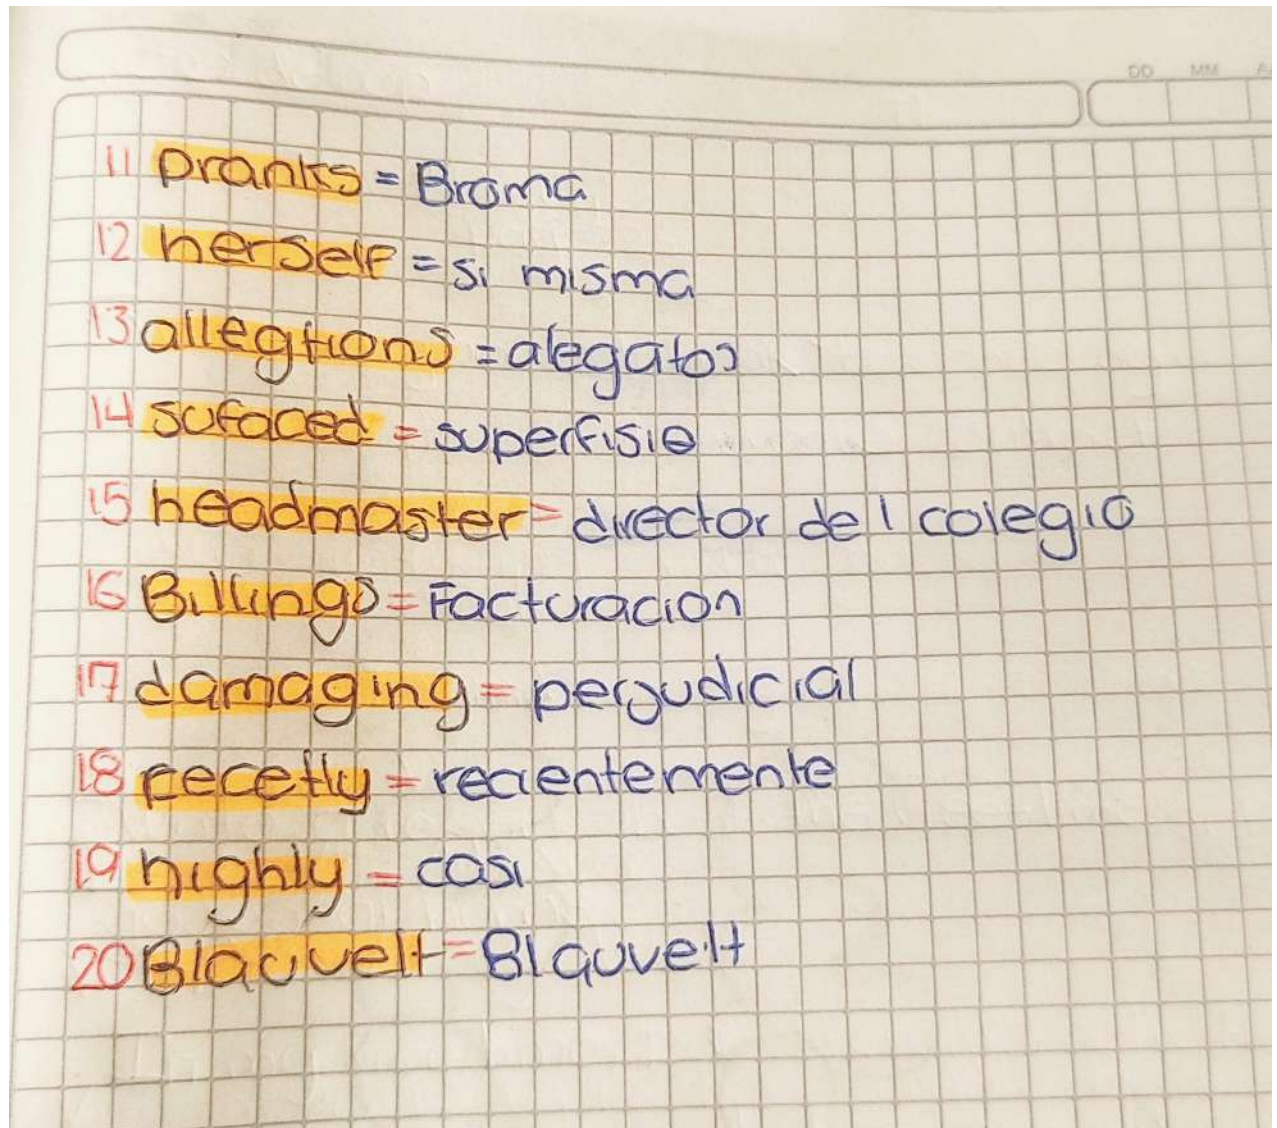 DD MM
11 pranks = Broma
12 herself = si misma
13 allegtions = alegatos
14 sufaced = superfisie
15 headmaster = director del colegio
16 Billings = Facturacion
17 damaging = perjudicial
18 recetly = recientemente
19 highly = casi
20 Blauvelt = Blauvelt